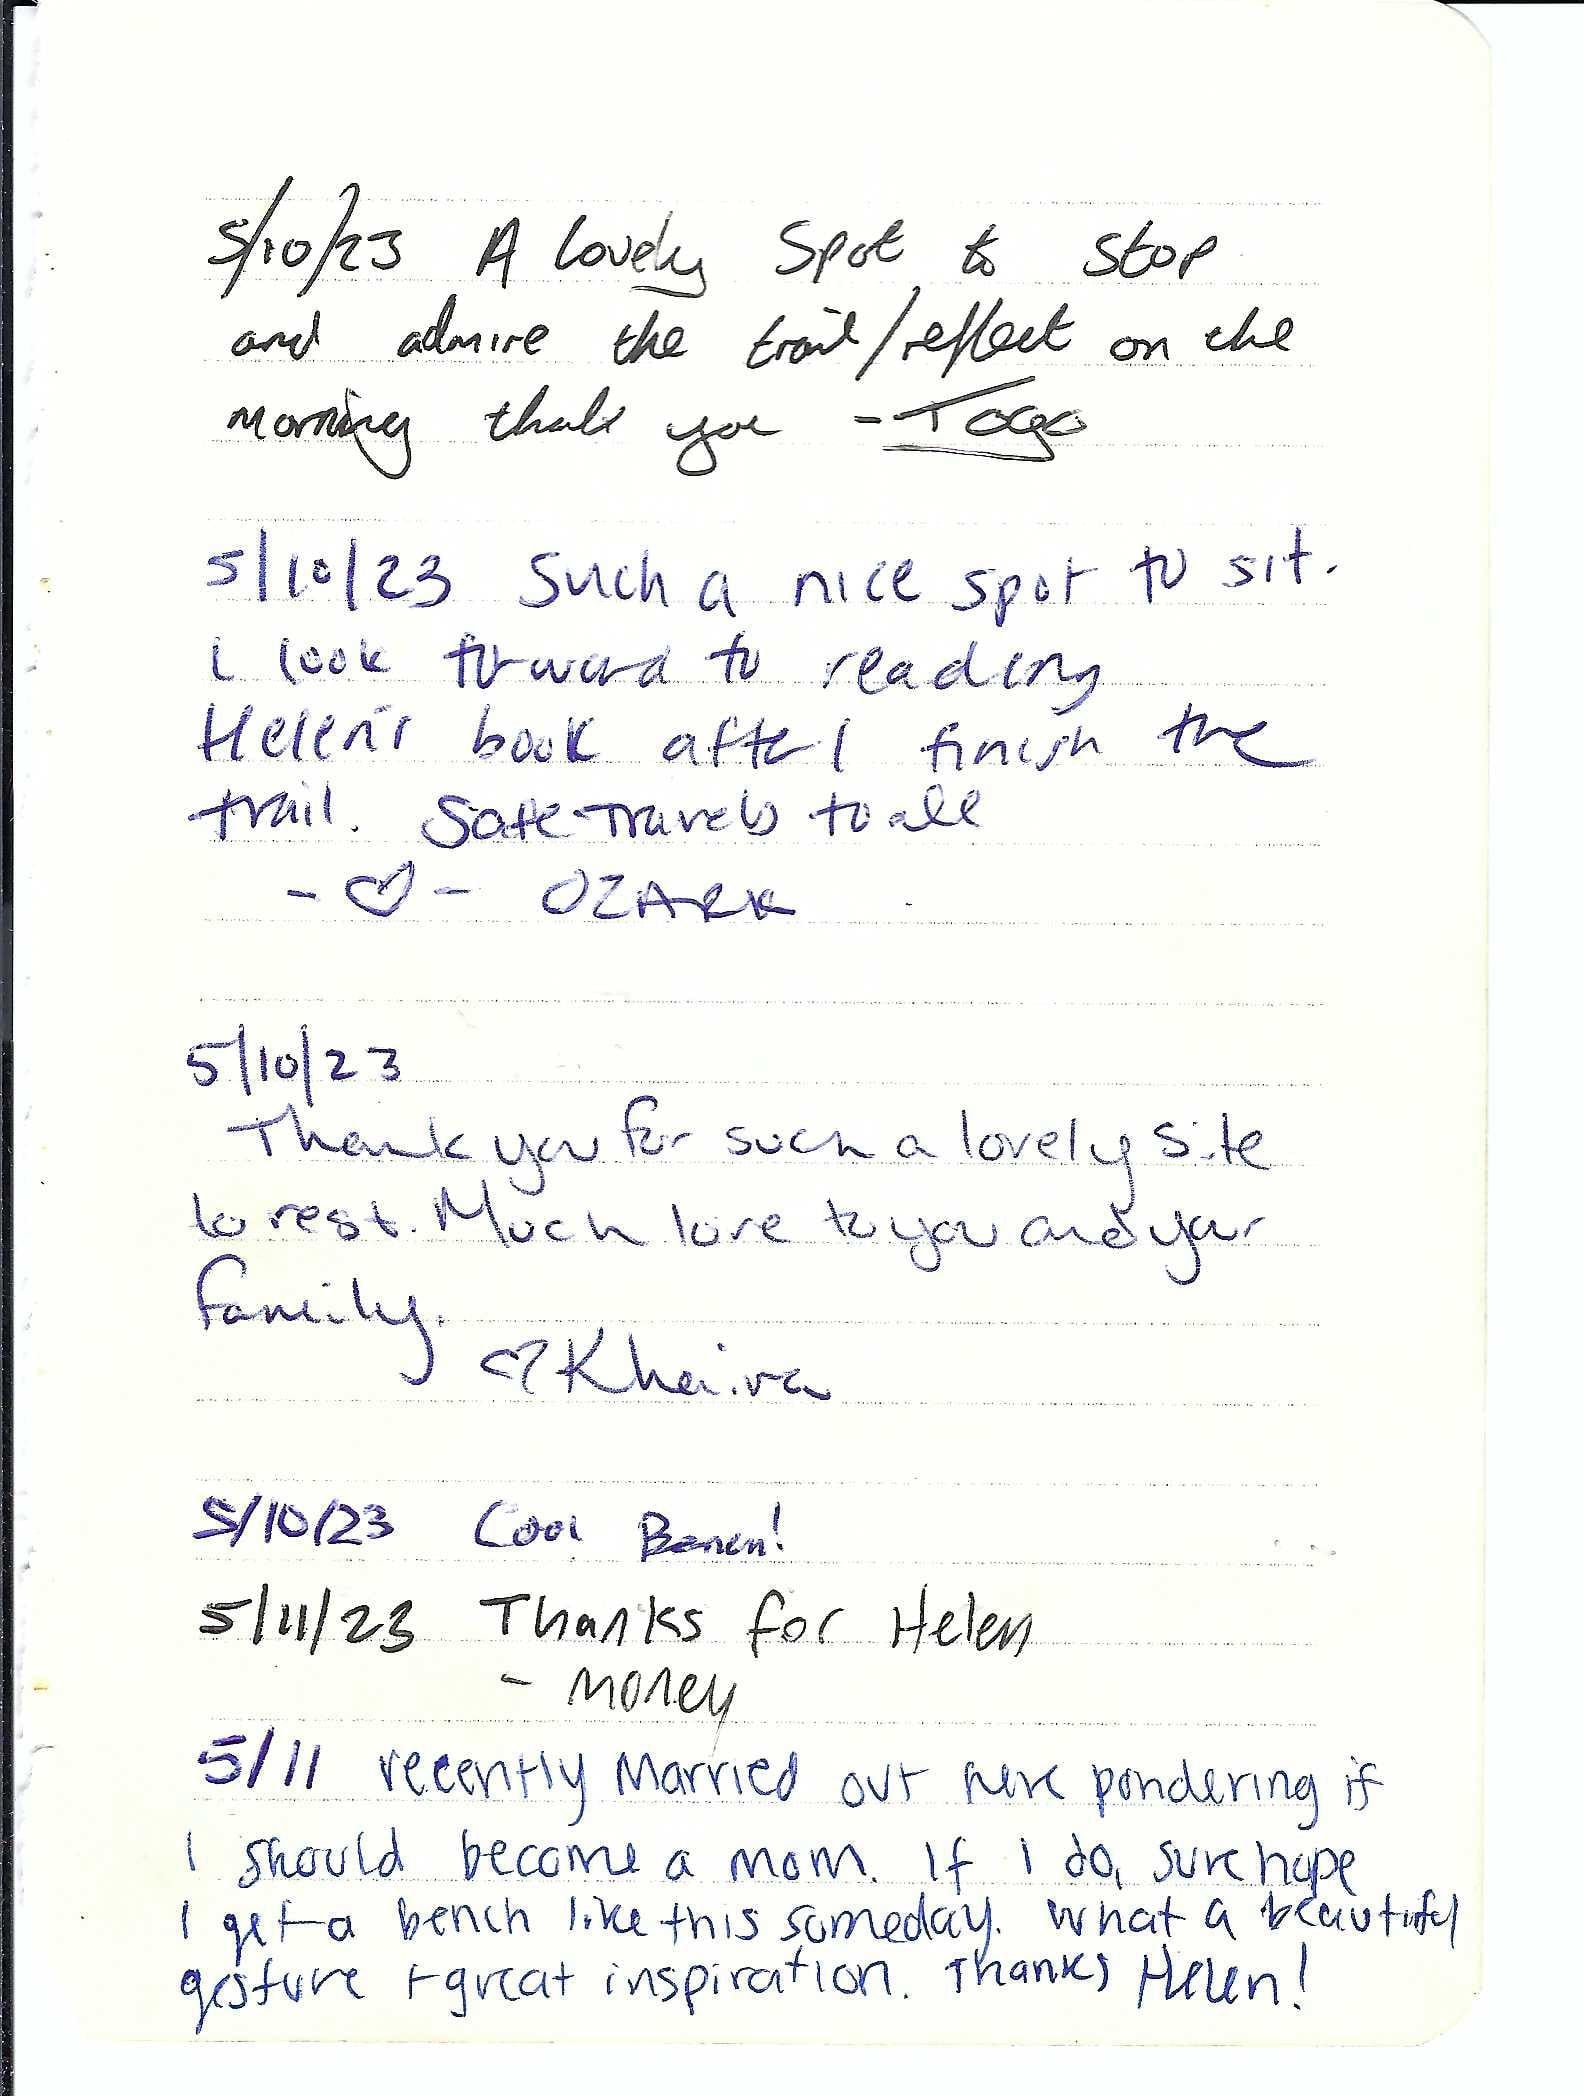 5/10/23 A lovely Spot to stop
and admire the trail/reflect on the
morning thak you - Togo
5/10/23 Such a nice spot to sit.
i look forward to reading
Helen's book after I finish the
trail. Safe travels to all
- ♡ - OZARK
5/10/23
Thank you for such a lovely site
to rest. Much love to you and your
family.
♡ Khaira
5/10/23 Cool Bench!
5/11/23 Thanks for Helen
- money
5/11 recently married out here pondering if
I should become a mom. If I do, sure hope
I get a bench like this someday. What a beautiful
gesture + great inspiration. Thanks Helen!